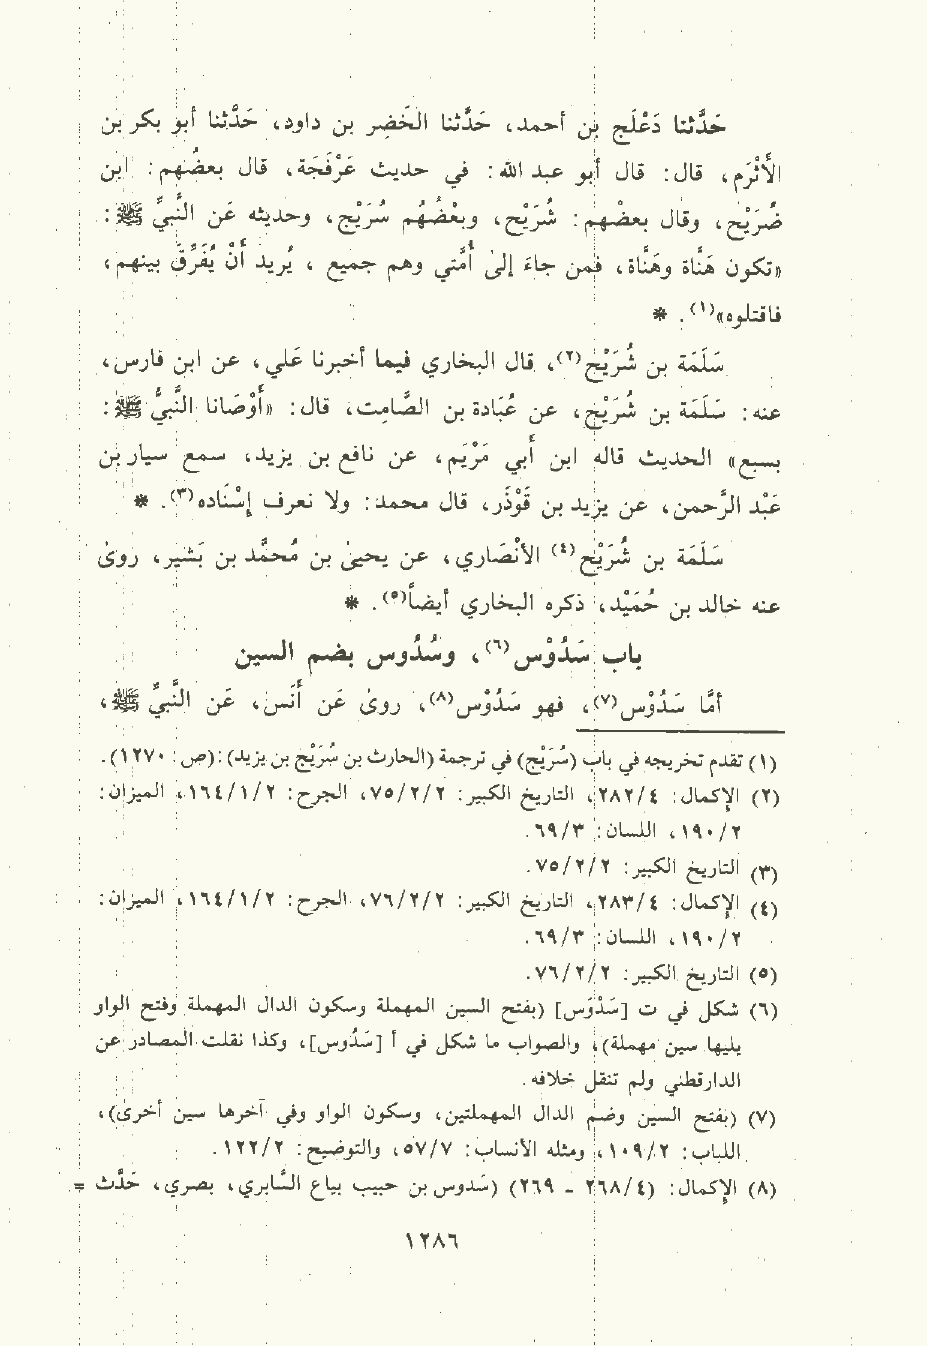 حَدَّثنا دَعْلَج بن أحمد، حَدَّثنا الخَضِر بن داود، حَدَّثنا أبو بكر بن
الأَثْرَم، قال: قال أبو عبد الله: في حديث عَرْفَجَة، قال بعضُهم: ابن
ضُرَيْح، وقال بعضْهم: شُرَيْح، وبعْضُهُم سُرَيْج، وحديثه عَن النَّبيِّ ﷺ:
«تكون هَنَّاة وهَنَّاة، فمن جاءَ إلىٰ أُمَّتي وهم جميع ، يُريد أَنْ يُفَرِّقَ بينهم،
فاقتلوه»(١). *
سَلَمَة بن شُرَيْح(٢)، قال البخاري فيما أخبرنا عَلي، عن ابن فارس،
عنه: سَلَمَة بن شُرَيْح، عن عُبَادة بن الصَّامِت، قال: «أَوْصَانا النَّبيُّ ﷺ:
بسبع» الحديث قاله ابن أبي مَرْيَم، عن نافع بن يزيد، سمع سيار بن
عَبْد الرَّحمن، عن يزيد بن قَوْذَر، قال محمد: ولا نعرف إسْنَاده(٣). *
سَلَمَة بن شُرَيْح(٤) الأنْصَاري، عن يحيىٰ بن مُحمَّد بن بَشير، روىٰ
عنه خالد بن حُمَيْد، ذكره البخاري أيضاً(٥). *
باب سَدُوْس(٦)، وسُدُوس بضم السين
أمَّا سَدُوْس(٧)، فهو سَدُوْس(٨)، روىٰ عَن أَنَس، عَن النَّبيِّ ﷺ،
(١) تقدم تخريجه في باب (سُرَيْج) في ترجمة (الحارث بن سُرَيْج بن يزيد): (ص: ١٢٧٠).
(٢) الإكمال: ٢٨٢/٤، التاريخ الكبير: ٧٥/٢/٢، الجرح: ١٦٤/١/٢، الميزان:
١٩٠/٢، اللسان: ٦٩/٣.
(٣) التاريخ الكبير: ٧٥/٢/٢.
(٤) الإكمال: ٢٨٣/٤، التاريخ الكبير: ٧٦/٢/٢، الجرح: ١٦٤/١/٢، الميزان:
١٩٠/٢، اللسان: ٦٩/٣.
(٥) التاريخ الكبير: ٧٦/٢/٢.
(٦) شكل في ت [سَدْوَس] (بفتح السين المهملة وسكون الدال المهملة وفتح الواو
يليها سين مهملة)، والصواب ما شكل في أ [سَدُوس]، وكذا نقلت المصادر عن
الدارقطني ولم تنقل خلافه.
(٧) (بفتح السين وضم الدال المهملتين، وسكون الواو وفي آخرها سين أخرىٰ)،
اللباب: ١٠٩/٢، ومثله الأنساب: ٥٧/٧، والتوضيح: ١٢٢/٢.
(٨) الإكمال: (٢٦٨/٤ - ٢٦٩) (سَدوس بن حبيب بياع السَّابري، بصري، حَدَّث =
١٢٨٦